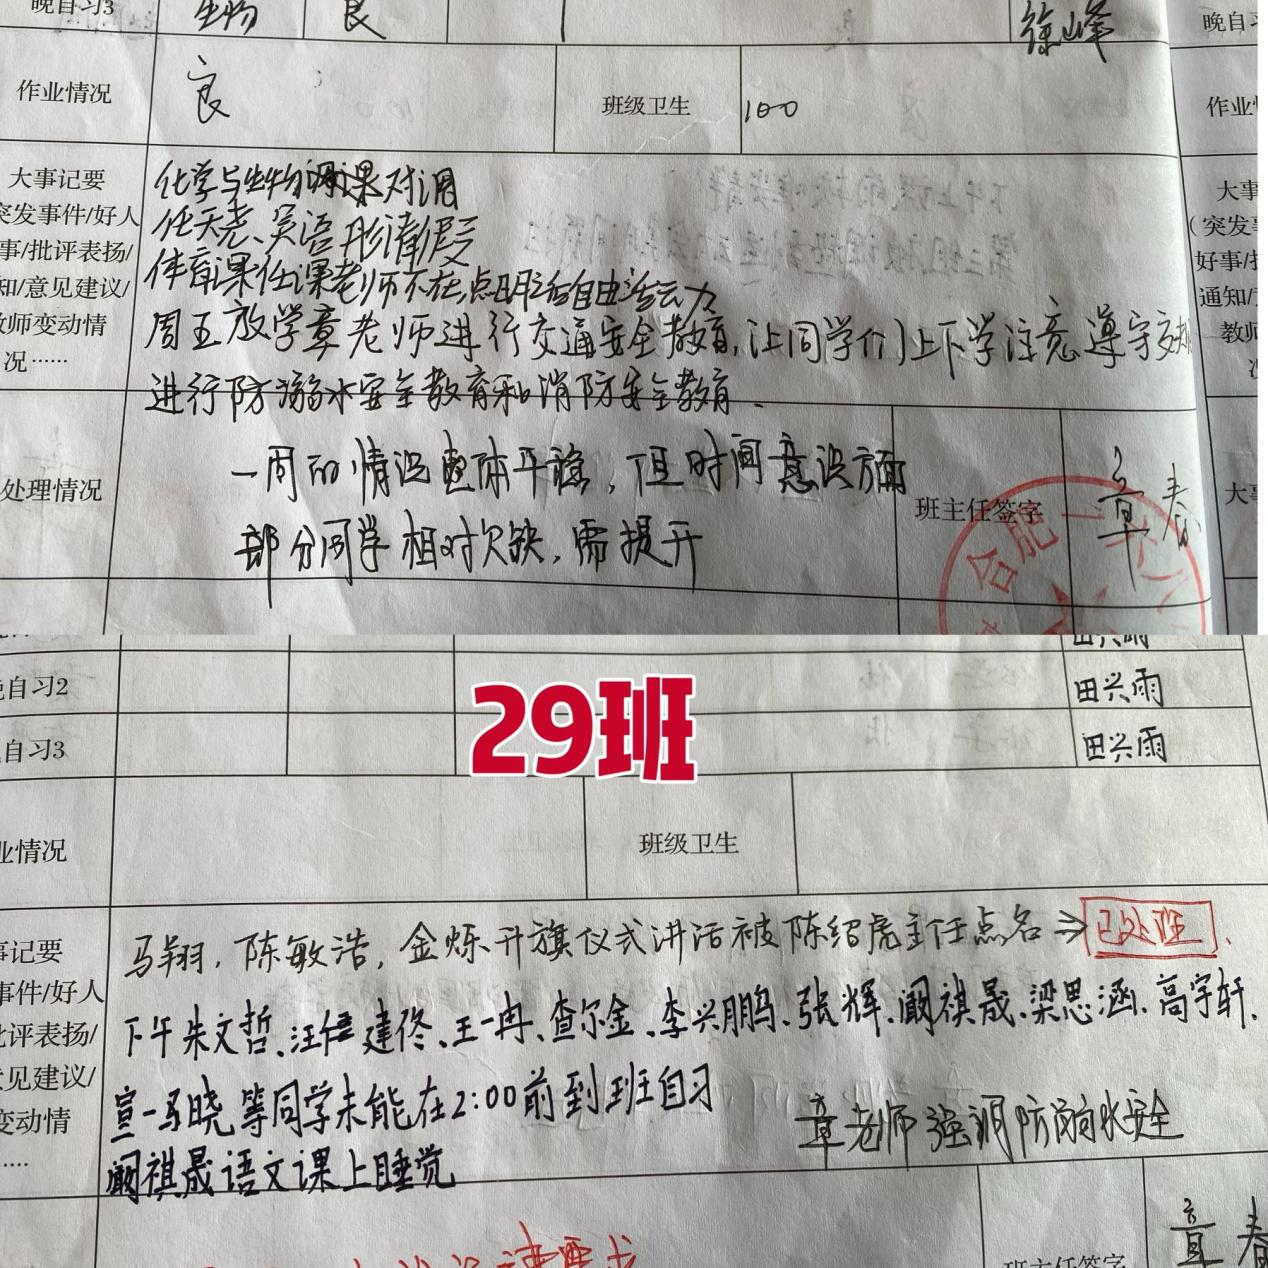 晚自习3 生物 良 徐峰 晚自习
作业情况 良 班级卫生 100 作业情
大事记要
突发事件/好人
事/批评表扬/
知/意见建议/
教师变动情
况……
化学与生物调课对调
体育课任课老师不在点明后自由活动
周五放学章老师进行交通安全教育,让同学们上下学注意遵守交规
进行防溺水安全教育和消防安全教育.
大事
(突发事
好事/批
通知/意
教师
处理情况
一周的情况整体平稳,但时间意识方面
部分同学相对欠缺,需提升
班主任签字 章春
合肥一六
29班
自习2 田兴雨
自习3 田兴雨
业情况 班级卫生
事记要
事件/好人
批评表扬/
意见建议/
变动情
……
马翔,陈敏浩,金烁升旗仪式讲话被陈绍虎主任点名⇒已处理.
下午朱文哲、汪建佟、王一冉、查尔金、李兴鹏、张辉、阚祺晟、梁思涵、高宇轩、
宣一马晓等同学未能在2:00前到班自习
章老师强调防溺水安全
阚祺晟语文课上睡觉
班主任签字 章春